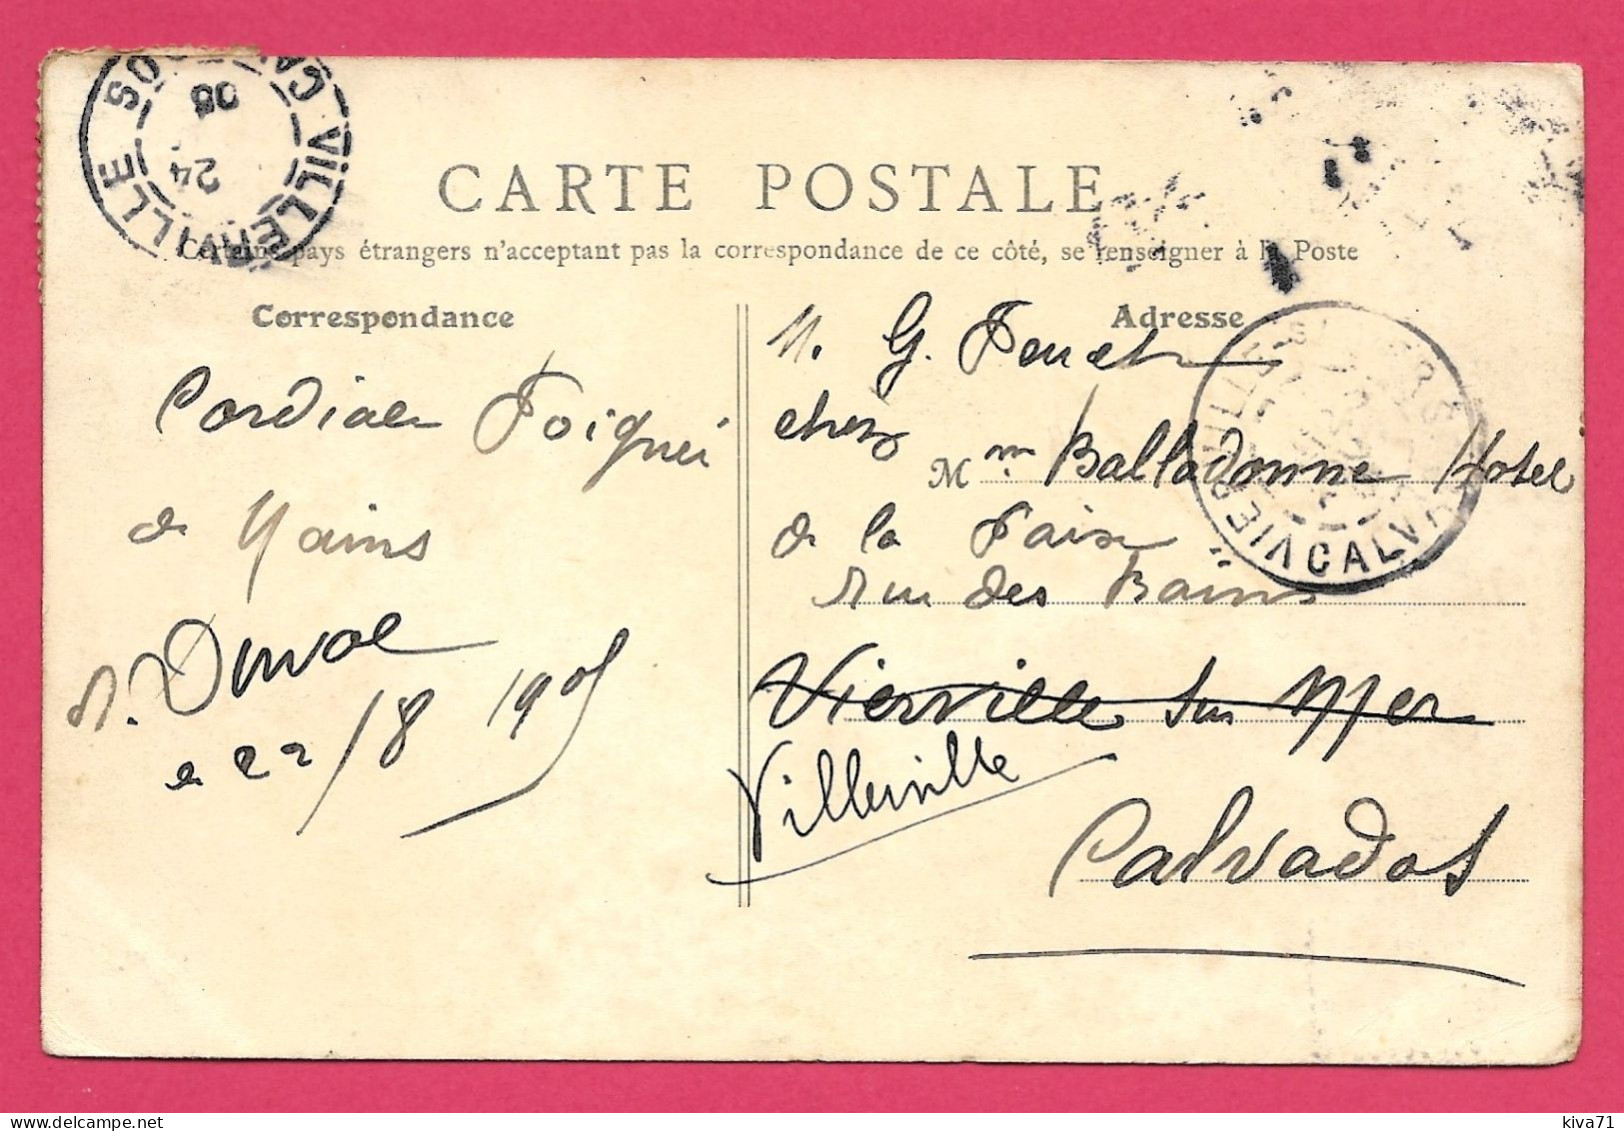 CARTE POSTALE
Certains pays étrangers n'acceptant pas la correspondance de ce côté, se renseigner à la Poste
Correspondance
Cordiale Poignée
de Mains
Duval
le 22/8 1905
Adresse
M. G.
chez
M me Balladonne Hotel
de la Paix
Rue des Bains
Vierville sur Mer
Villerville
Calvados
VILLERVILLE CALVADOS
24
08
CALVADOS
kiva71